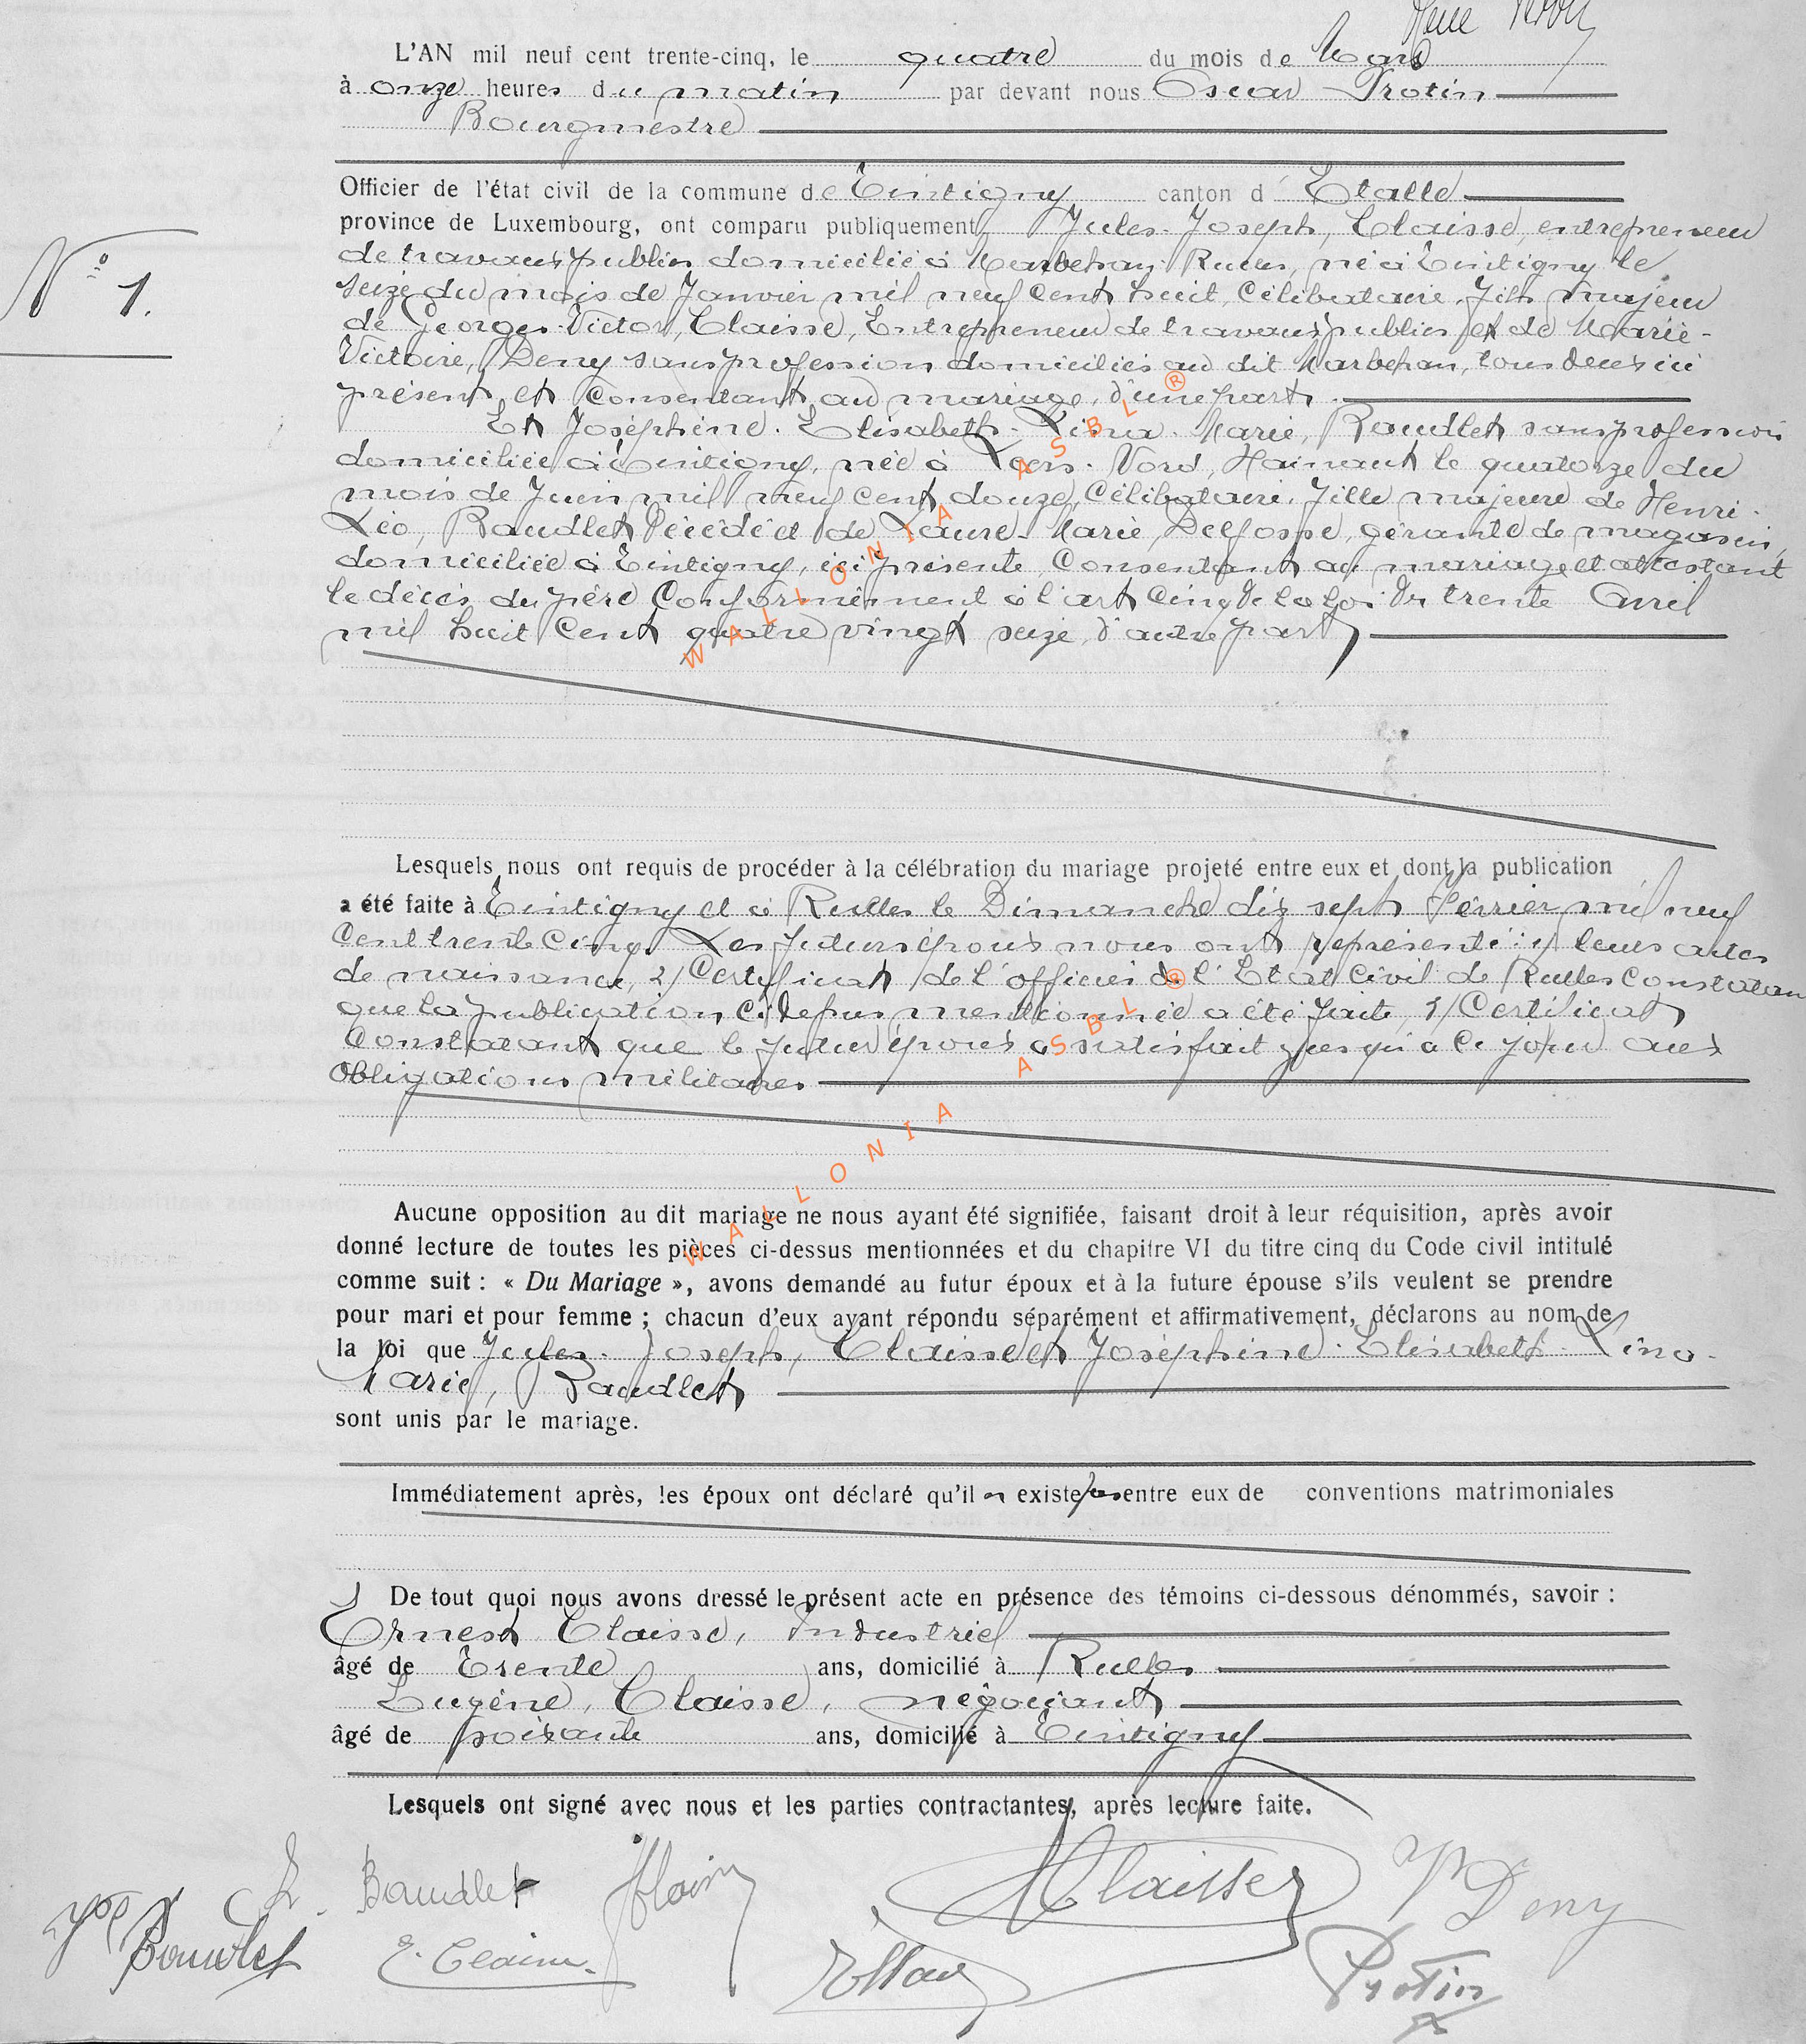 L'AN mil neuf cent trente-cinq, le quatre du mois de Mars
à onze heures du matin par devant nous Oscar Protin
Bourgmestre
Officier de l'état civil de la commune de Tintigny canton d' Etalle
province de Luxembourg, ont comparu publiquement, Jules-Joseph, Claisse, entrepreneur
de travaux publics domicilié à Marbehan-Rulles, né à Tintigny le
seize du mois de Janvier mil neuf cent huit, Célibataire, fils majeur
N° 1.
de Georges-Victor, Claisse, Entrepreneur de travaux publics et de Marie-
Victoire, Deny sans profession domiciliés au dit Marbehan, tous deux ici
présent et Consentant au mariage, d'une part.
Et Joséphine-Elisabeth-Lina-Marie, Baudlet sans profession
domiciliée à Tintigny, née à Leers-Nord, Hainaut le quatorze du
mois de Juin mil neuf cent douze, Célibataire, fille majeure de Henri-
Léo, Baudlet Décédé et de Laure-Marie, Delfosse, gérante de magasin,
domiciliée à Tintigny, ici présente, Consentant au mariage et attestant
le décès du père Conformément à l'art Cinq de la loi du trente Avril
mil huit Cent quatre vingt seize, d'autre part,
WALLONIA ASBL ®
Lesquels nous ont requis de procéder à la célébration du mariage projeté entre eux et dont la publication
a été faite à Tintigny et à Rulles le Dimanche dix sept Février mil neuf
Cent trente Cinq. Les futurs époux nous ont représenté: 1/ leurs actes
de naissance, 2/ Certificat de l'officier de l'Etat Civil de Rulles Constatan
que la publication Ci depus mentionnée a été faite, 3/ Certificat
Constatant que le futur époux a satisfait jusqu'à Ce jour aux
Obligations militaires
WALLONIA ASBL ®
Aucune opposition au dit mariage ne nous ayant été signifiée, faisant droit à leur réquisition, après avoir
donné lecture de toutes les pièces ci-dessus mentionnées et du chapitre VI du titre cinq du Code civil intitulé
comme suit : « Du Mariage », avons demandé au futur époux et à la future épouse s'ils veulent se prendre
pour mari et pour femme ; chacun d'eux ayant répondu séparément et affirmativement, déclarons au nom de
la loi que Jules-Joseph, Claisse et Joséphine-Elisabeth-Lina-
Marie, Baudlet
sont unis par le mariage.
Immédiatement après, les époux ont déclaré qu'il n existe pas entre eux de conventions matrimoniales
De tout quoi nous avons dressé le présent acte en présence des témoins ci-dessous dénommés, savoir :
Ernest Claisse, Industriel
âgé de Trente ans, domicilié à Rulles
Eugène, Claisse, négociant
âgé de soixante ans, domicilié à Tintigny
Lesquels ont signé avec nous et les parties contractantes, après lecture faite.
L. Baudlet Claisse V Deny
Baudlet E. Claisse Protin